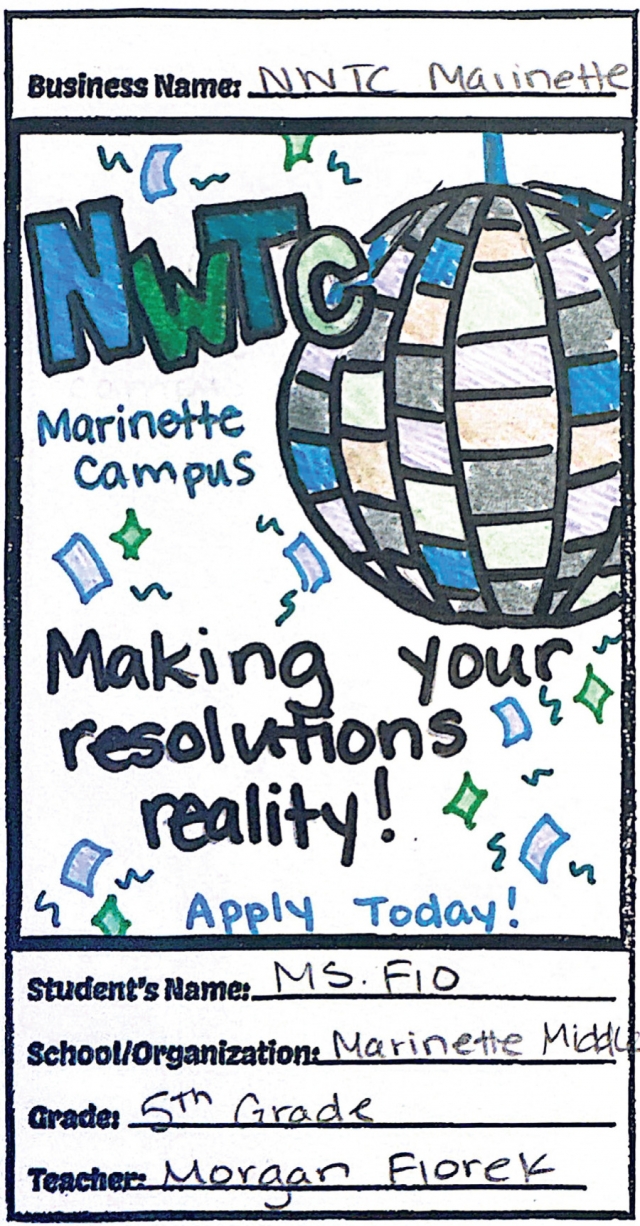 Business Name: NWTC Marinette
NWTC
Marinette
Campus
Making your
resolutions
reality!
Apply Today!
Student's Name: MS. Fio
School/Organization: Marinette Middle
Grade: 5th Grade
Teacher: Morgan Fiorek